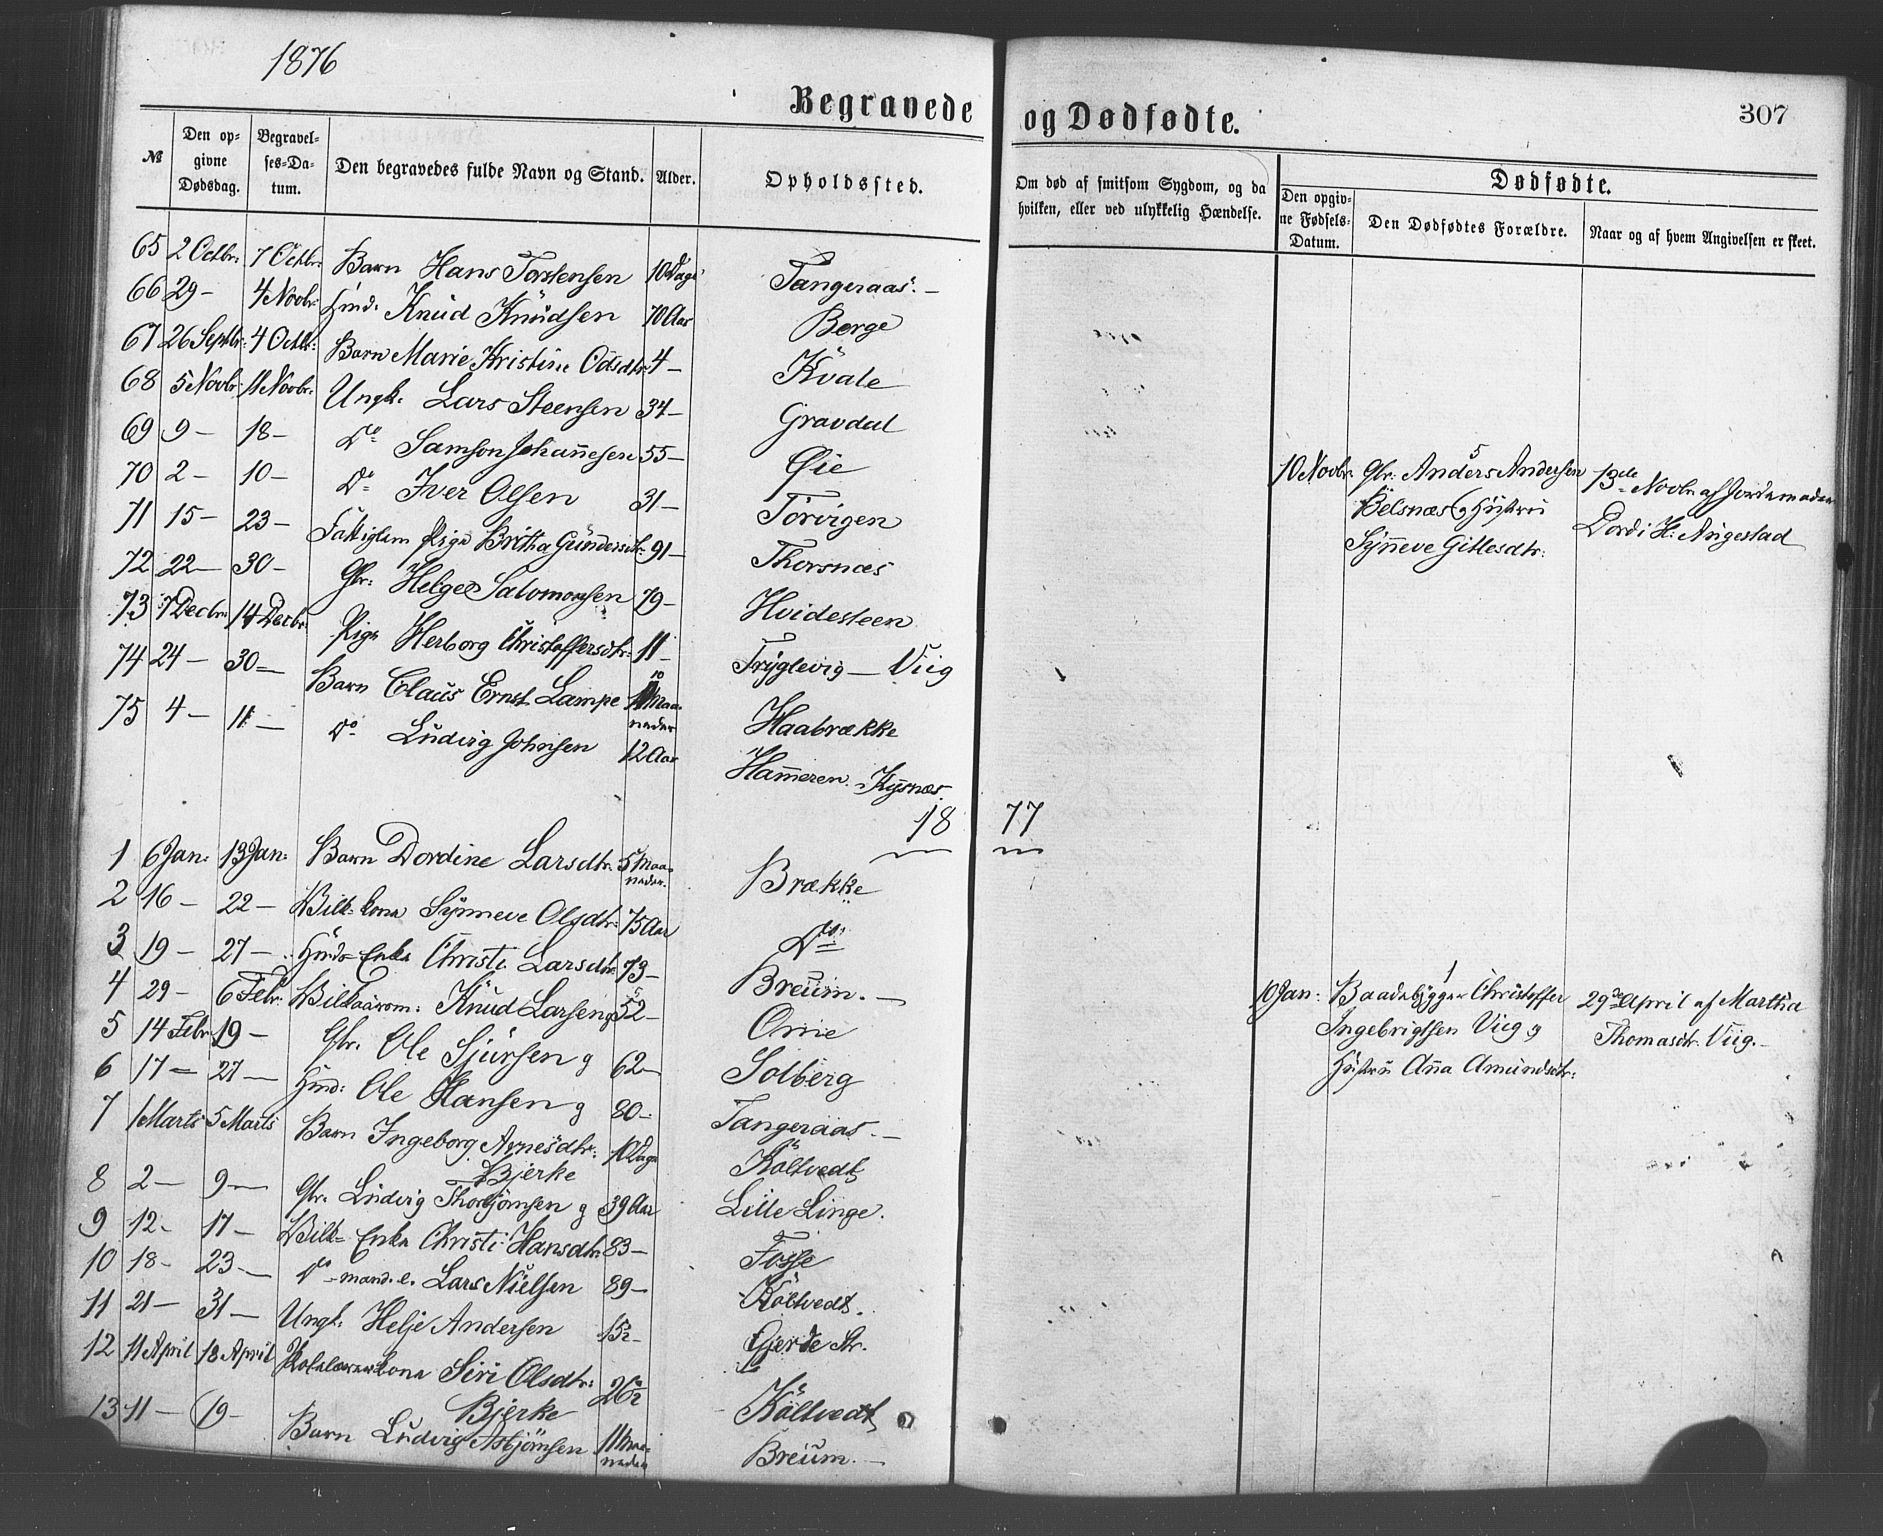 1876
Begravede og Dødfødte.
307
№ Den opgivne Dødsdag. Begravelses-Datum. Den begravedes fulde Navn og Stand. Alder. Opholdssted. Om død af smitsom Sygdom, og da hvilken, eller ved ulykkelig Hændelse.
Dødfødte.
Den opgivne Fødsels-Datum. Den Dødfødtes Forældre. Naar og af hvem Angivelsen er skeet.
65 2 Octbr: 7 Octbr: Barn Hans Torstensen 10 Dage Tangeraas. —
66 29 - 4 Novbr: Huusmd: Knud Knudsen 70 Aar Berge
67 26 Septbr: 4 Octbr: Barn Marie Kristine Odsdtr 4 — Kvale
68 5 Novbr 11 Novbr: Ungk. Lars Steensen 34 — Gravdal
69 9 — 18 — Do Samson Johannesen 55 — Øie
70 2 — 10 — Do Iver Olsen 31 — Torvigen
71 15 — 23 — Fattiglem Pige Britha Gundersdtr: 91 — Thorsnæs
72 22 — 30 — Gbr: Helge Salomonsen 79 — Hvidesteen
73 7 Decbr: 14 Decbr: Pige Herborg Christoffersdtr: 11 — Tryglevig — Viig
74 24 — 30 — Barn Claus Ernst Lampe 10 Maaneder Haabrække
75 4 — 11 — Do Ludvig Johnsen 12 Aar Hammeren. Kysnæs.
10 Novbr. Gbr: Anders Andersen
5
Belsnæs og Hustru
Synneve Gitlesdtr:
13de Novbr af Jordemoder
Dordi H: Augestad
18 77
1 6 Jan: 13 Jan: Barn Dordine Larsdtr. 5 Maaneder. Brække
2 16 — 22 — Vilk: kona Synneve Olsdtr: 75 Aar Do
3 19 — 27 — Huusmd Enke Christi Larsdtr 73 — Breum. —
4 29 — 6 Febr: Knud Larsen 52 — Omie
5 14 Febr 19 — Gbr. Ole Sjursen g 62 — Solberg
6 17 — 27 — Huusmd: Ole Hansen g 80 — Tangeraas. —
7 1 Marts 5 Marts Barn Ingeborg Arnesdtr: 10 Dage Költvedt
Bjerke
8 2 — 9 — Gbr. Ludvig Thorbjørnsen g 39 Aar Lille Linge.
9 12 — 17 — Vilk= Enke Christi Hansdtr 83 — Fosse
10 18 — 23 — Do — mand. e. Lars Nielsen 89 — Költvedt.
11 21 — 31 — Ungk: Helje Andersen 15½ Gjerde Str.
12 11 April 18 April Skolelærerkona Siri Olsdtr: 26½ Költvedt
Bjerke
13 11 — 19 — Barn Ludvig Asbjørnsen 11 Maaneder Breum. —
10 Jan: Baadebygger Christoffer
1
Ingebrigtsen Viig og
Hustru Anna Amundsdtr:
29de April af Martha
Thomasdtr. Viig. —